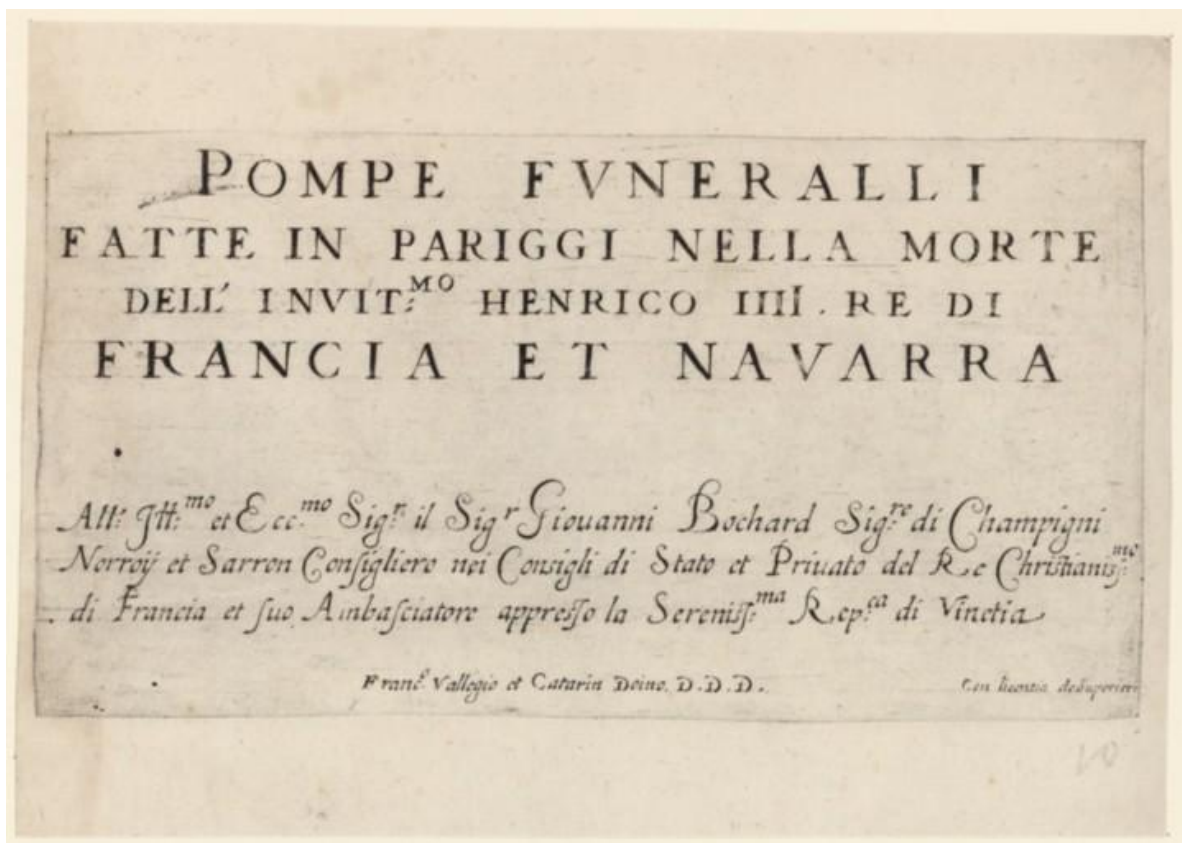 POMPE FVNERALLI
FATTE IN PARIGGI NELLA MORTE
DELL' INVIT:MO HENRICO IIII. RE DI
FRANCIA ET NAVARRA
All: Ill:mo et Ecc:mo Sig:r il Sigr Giouanni Bochard Sig:re di Champigni
Norroÿ et Sarron Consigliero nei Consigli di Stato et Priuato del Re Christianiss:mo
di Francia et suo Ambasciatore appresso la Sereniss:ma Rep:ca di Vinetia
Franc: Vallegio et Catarin Doino. D.D.D.
Con licentia de Superiori
10